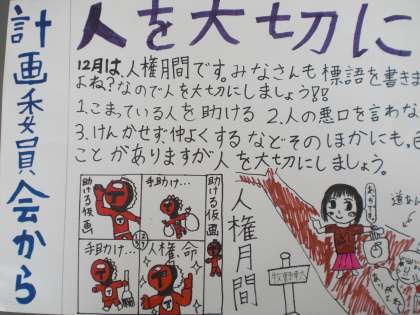 計画委員会から
人を大切に
12月は、人権月間です。みなさんも標語を書きま
よね?なので人を大切にしましょう!!
1.こまっている人を助ける 2.人の悪口を言わな
3.けんかせず、仲よくする などそのほかにも、
ことがありますが人を大切にしましょう。
助ける仮面
手助け…
助ける仮面
手助け…
人権命
人権月間
道あん